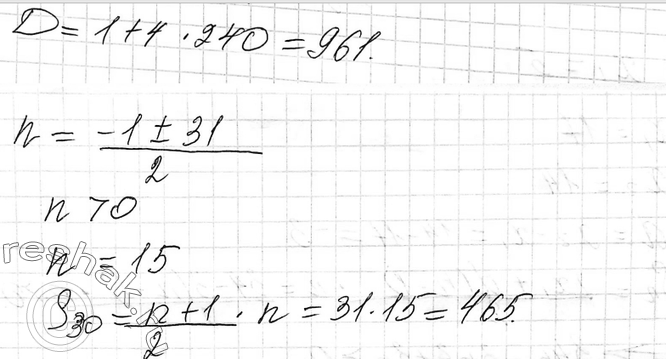 D = 1 + 4 · 240 = 961.
n = (-1 ± 31) / 2
n > 0
n = 15
S₃₀ = (n + 1) / 2 · n = 31 · 15 = 465.
reshak.ru